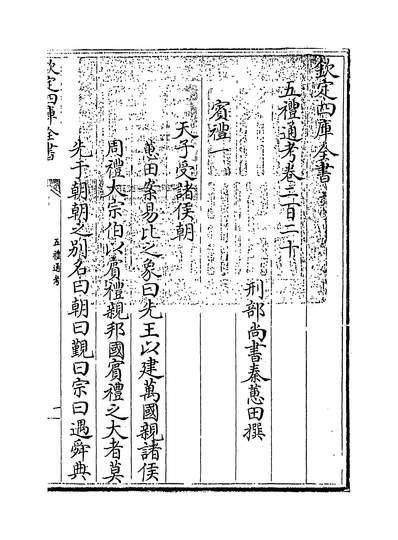 欽定四庫全書
五禮通考卷二百二十
刑部尚書秦蕙田撰
賓禮一
天子受諸侯朝
蕙田案易比之象曰先王以建萬國親諸侯
周禮大宗伯以賓禮親邦國賓禮之大者莫
先于朝朝之別名曰朝曰覲曰宗曰遇舜典
欽定四庫全書
五禮通考
一